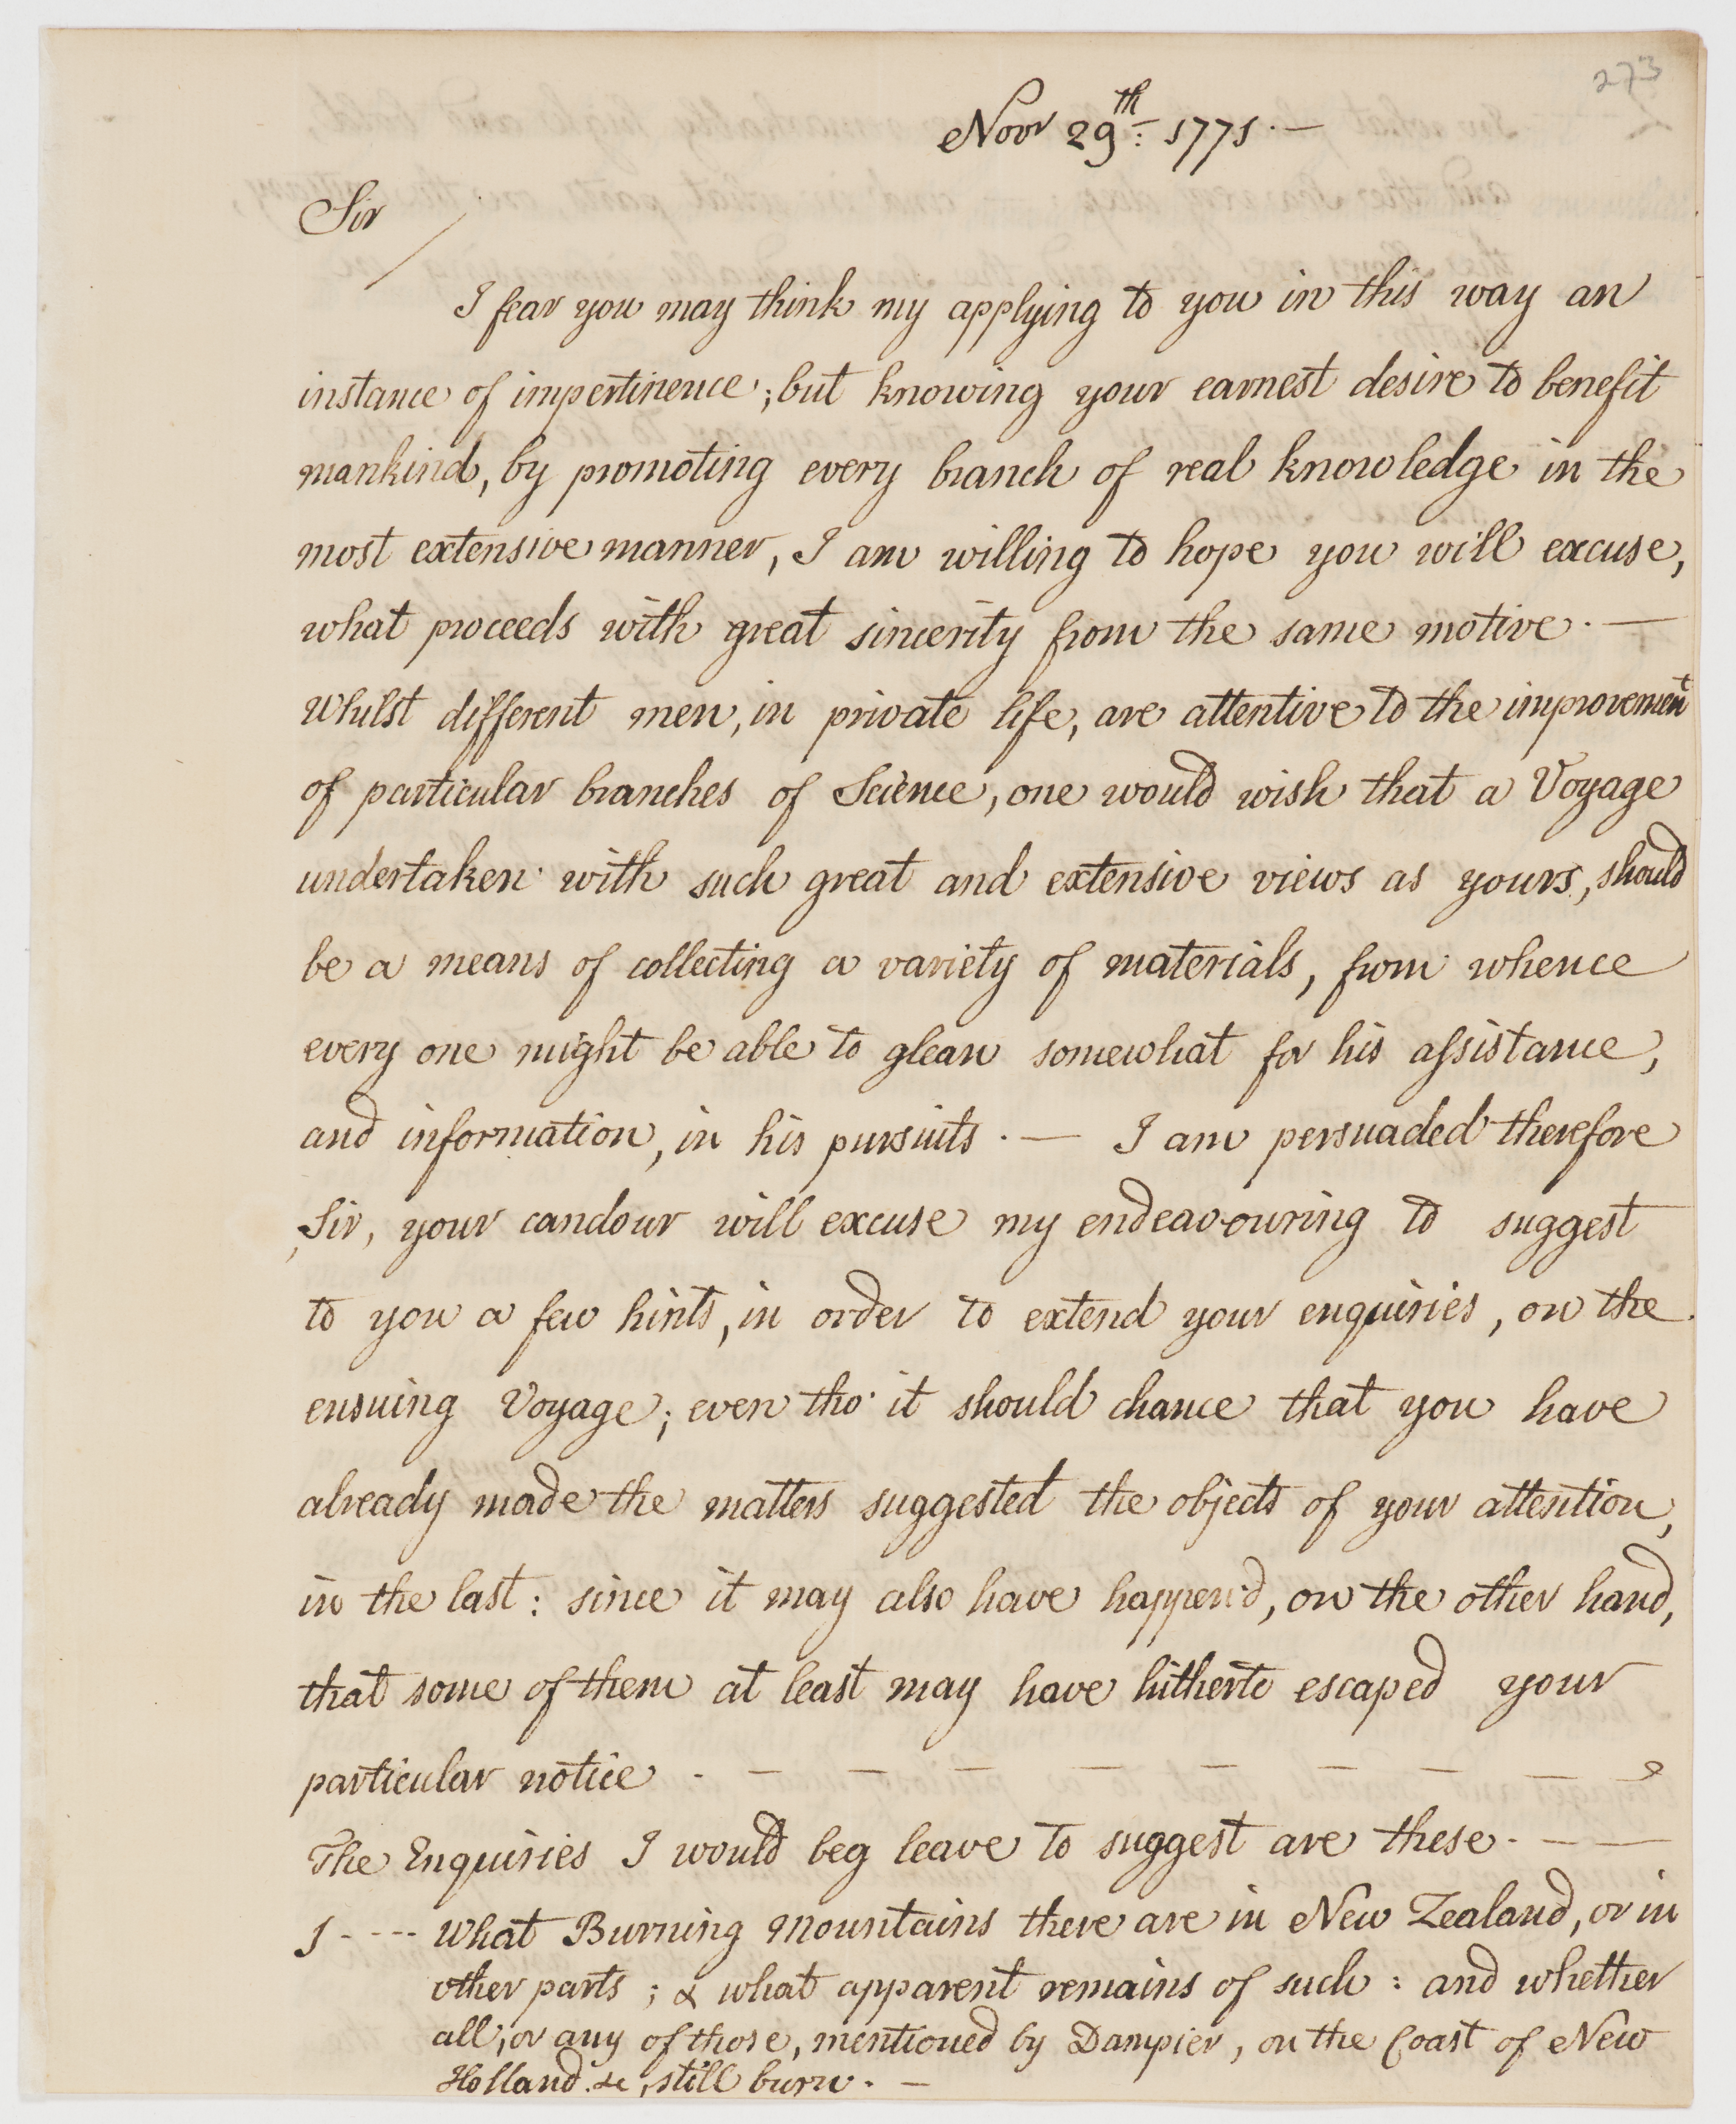 273
Novr 29th: 1771. —
Sir
I fear you may think my applying to you in this way an
instance of impertinence; but knowing your earnest desire to benefit
mankind, by promoting every branch of real knowledge in the
most extensive manner, I am willing to hope you will excuse,
what proceeds with great sincerity from the same motive. —
Whilst different men, in private life, are attentive to the improvement
of particular branches of Science, one would wish that a Voyage
undertaken with such great and extensive views as yours, should
be a means of collecting a variety of materials, from whence
every one might be able to glean somewhat for his assistance,
and information, in his pursuits. — I am persuaded therefore
Sir, your candour will excuse my endeavouring to suggest
to you a few hints, in order to extend your enquiries, on the
ensuing Voyage; even tho' it should chance that you have
already made the matters suggested the objects of your attention,
in the last: since it may also have happen'd, on the other hand,
that some of them at least may have hitherto escaped your
particular notice . — — — — — — — —
The Enquiries I would beg leave to suggest are these. — —
1 - - - - What Burning Mountains there are in New Zealand, or in
other parts; & what apparent remains of such: and whether
all, or any of those, mentioned by Dampier, on the Coast of New
Holland &c, still burn. —